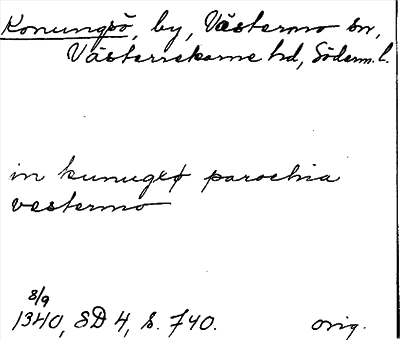 Konungsö, by, Västermo sn,
Västerrekarne hd, Söderm. l.
in kunugsø parochia
vestermo
8/9
1340, SD 4, s. 740. orig.